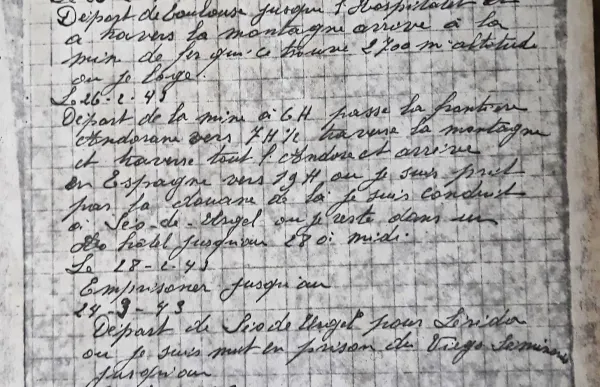 Départ de Toulouse jusque l'Hospitalet
a travers la montagne arrive à la
mine de fer qui ce trouve 2700 m altitude
ou je loge.
Le 26-2-43
Départ de la mine à 6H passe la frontiere
Andorane vers 7H½ traverse la montagne
et traverse tout l'Andore et arrive
en Espagne vers 19H ou je suis prit
par la douane de la je suis conduit
a Séo-de-Urgel ou je reste dans un
hotel jusqu'au 28 à midi.
Le 28-2-43
Emprisoner jusqu'au
24-3-43
Départ de Séo de Urgel pour Lérida
ou je suis mit en prison du
jusqu'au